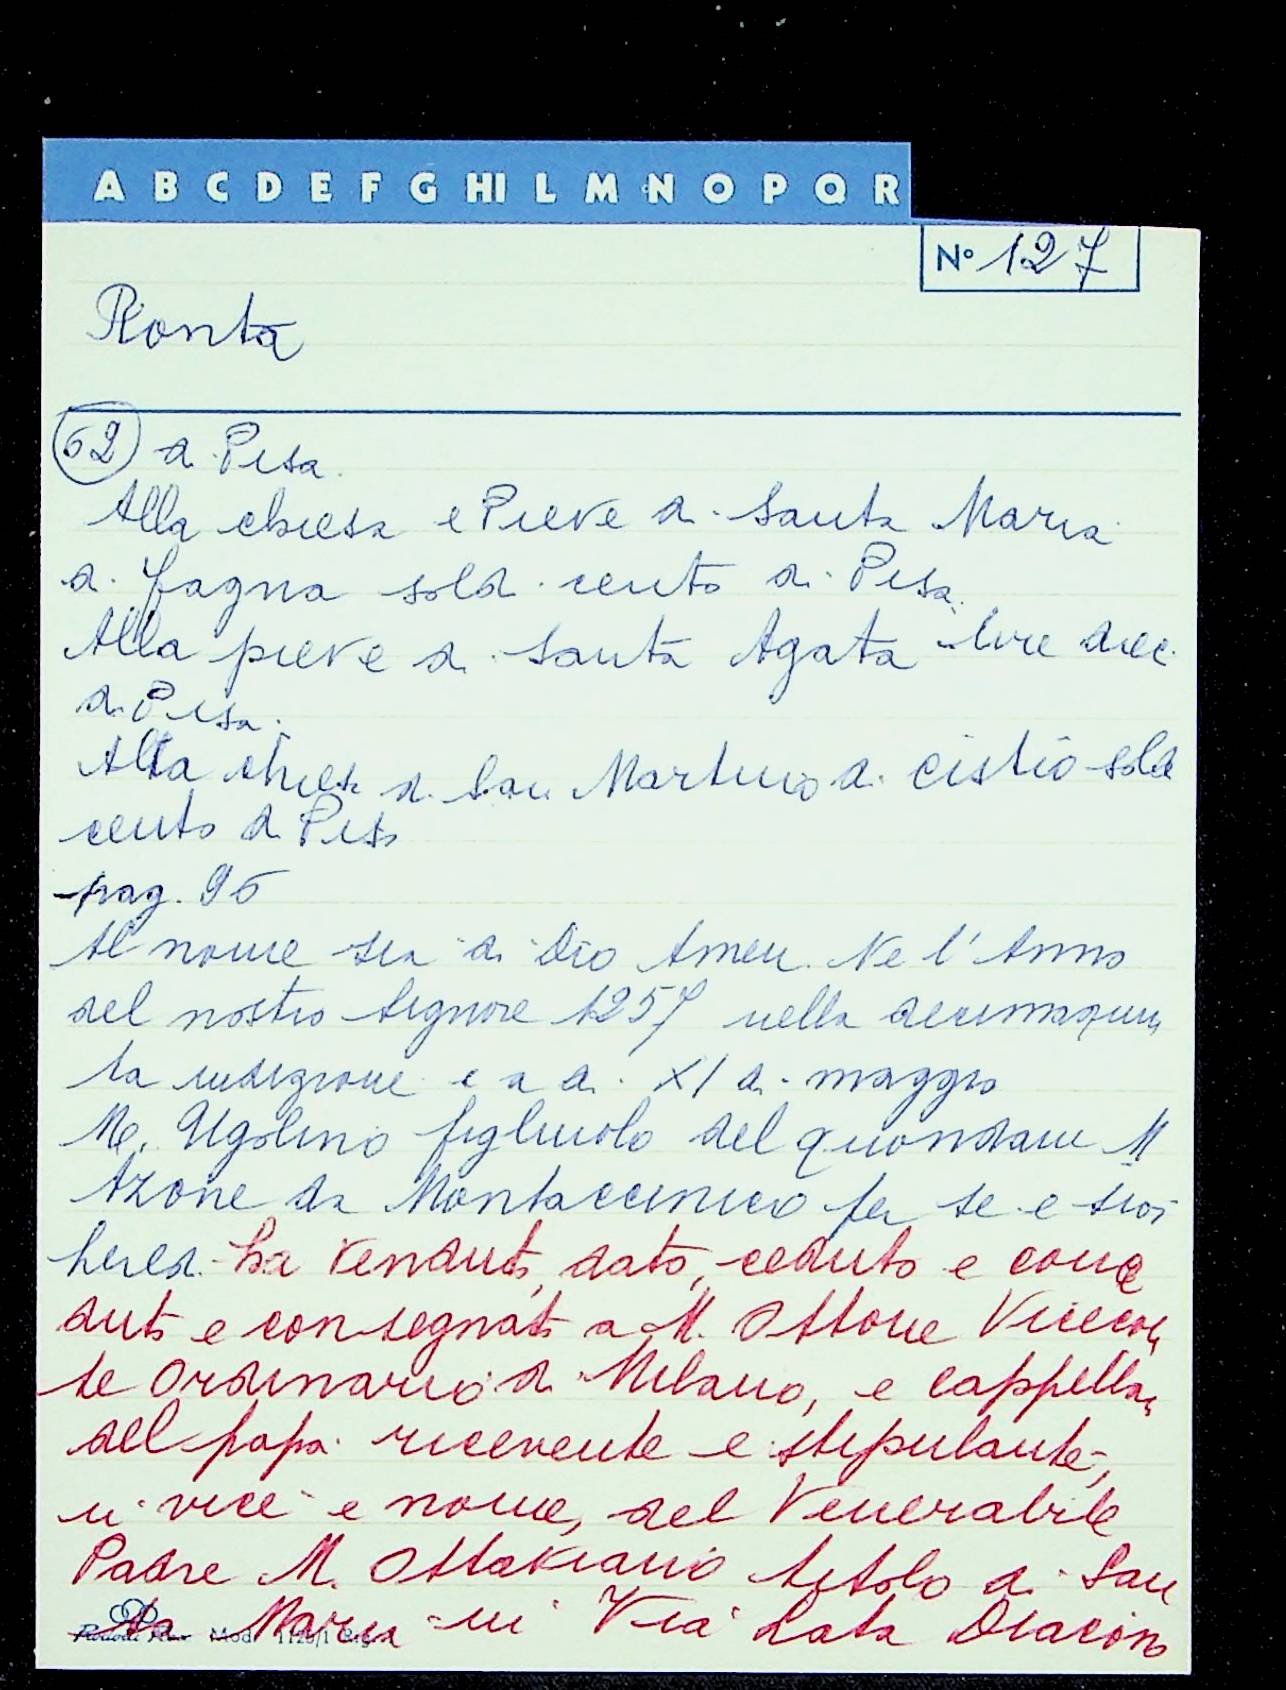 A B C D E F G HI L M N O P Q R
N° 127
Ronta
62 di Pisa.
Alla chiesa e Pieve di Santa Maria
di Fagna soldi cento di Pisa.
Alla pieve di Santa Agata lire dieci
di Pisa.
Alla chiesa di San Martino di cistio soldi
cento di Pisa
pag. 95
Al nome sia di Dio Amen. Ne l'Anno
del nostro Signore 1257 nella decimaquin
ta indizione e a di XI di maggio
M. Ugolino figliuolo del quondam M
Azone da Montaccinico per se e suoi
heredi ha venduto, dato, ceduto e conce
duto e consegnato a M. Ottone Viscon
te ordinario di Milano, e cappellan
del papa ricevente e stipulante,
in vice e nome, del Venerabile
Padre M. Ottaviano titolo di San
ta Maria in Via Lata Diacono
Mod.